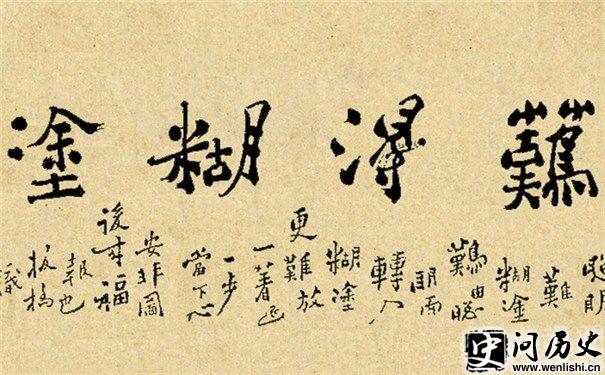 難得糊塗
聰明
難
糊塗
難由聰
明而
轉入
糊塗
更難放
一着退
一步
當下心
安非圖
後來福
報也
板橋
識
史
问历史
www.wenlishi.cn